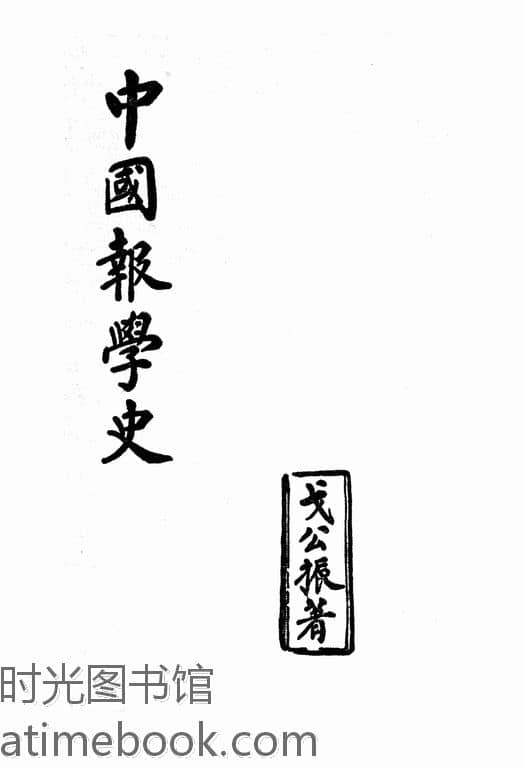 中國報學史
戈公振著
时光图书馆
atimebook.com